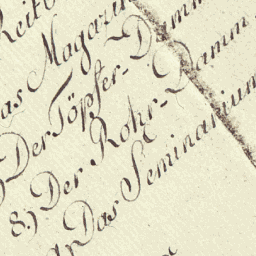 as Magazin
Der Töpfer-Damm
8.) Der Rohr-Damm
Das Seminarium